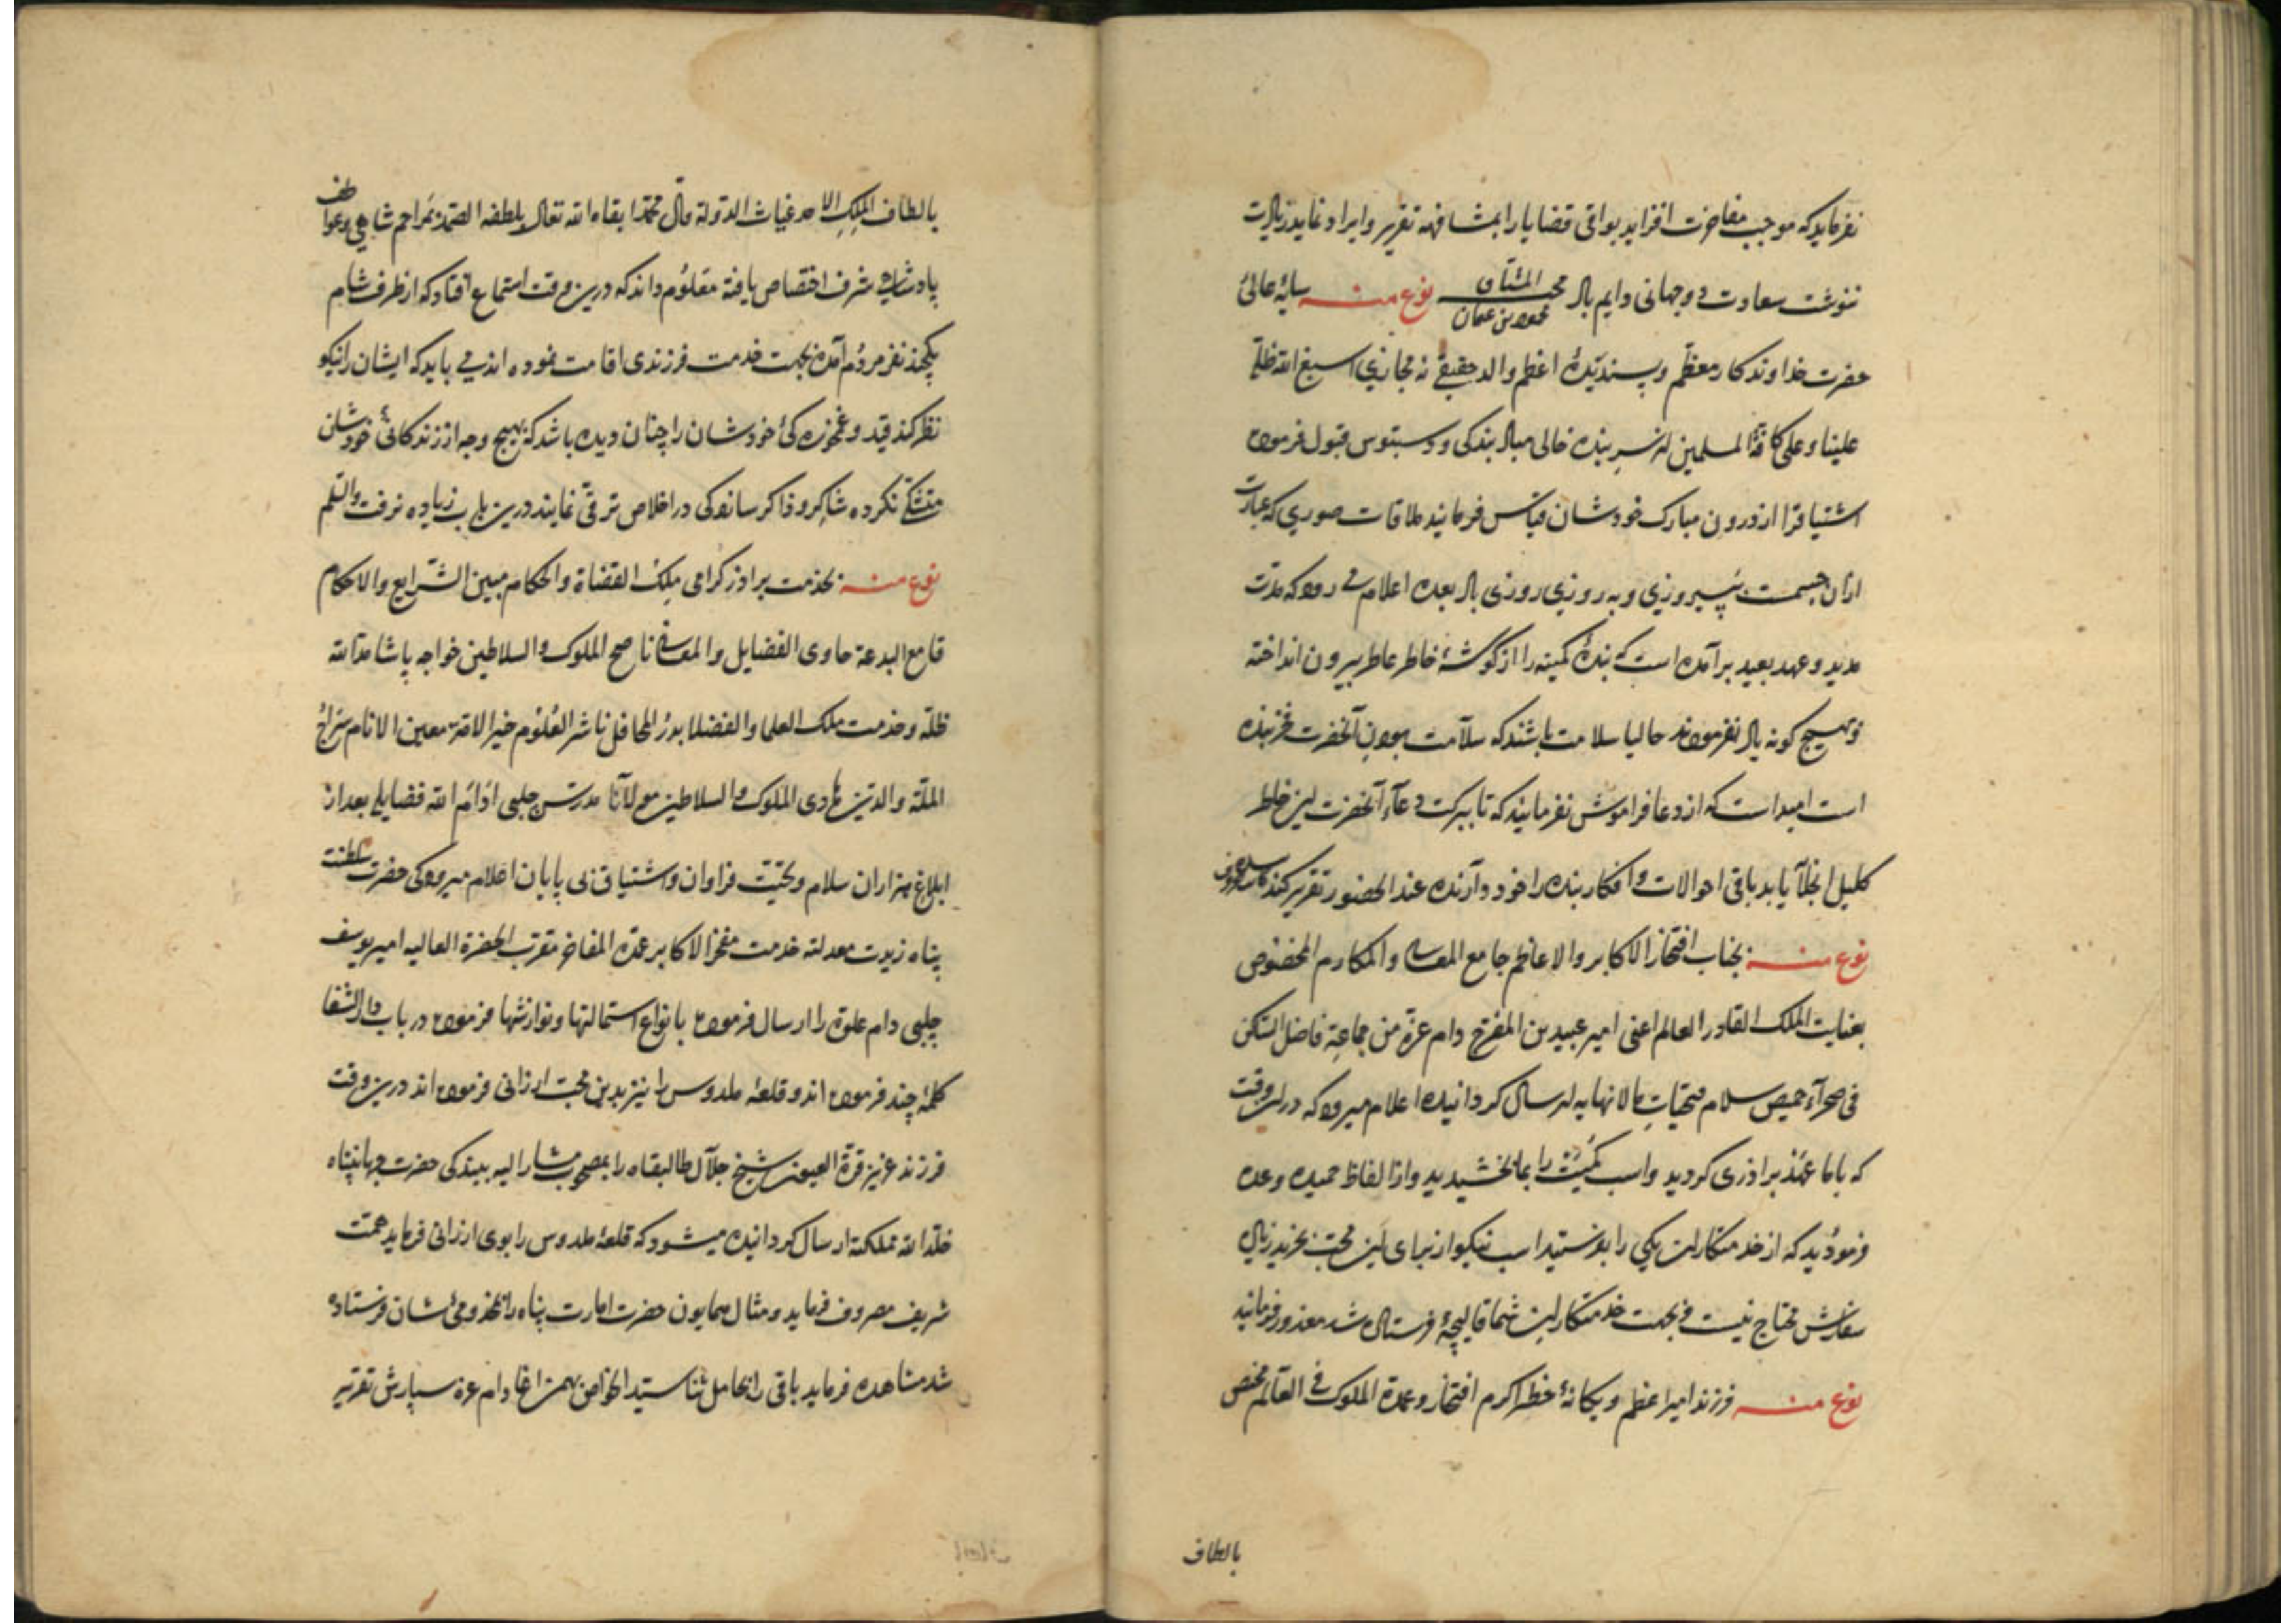 نفرماید که موجب مفاخرت افزاید بواقی قضایا را بمشافهه تقریر و ایراد نماید زیادت
ننوشت سعادت دوجهانی دایم باد محب المشتاق محمود بن عثمان نوع منه سایهٔ عالی
حضرت خداوندکار معظم و پسندیدهٔ اعظم والد حقیقی نه مجازی اسبغ الله ظله
علینا و علی کافة المسلمین از سر بنده خالی مباد بندگی و دستبوس قبول فرموده
اشتیاق را از درون مبارک خودشان قیاس فرمایند ملاقات صوری که عبارت
از آن جسمست بپیروزی و به روزی روزی باد بعده اعلام می رود که مدت
مدید و عهد بعید برآمده است که بندهٔ کمینه را از گوشهٔ خاطر عاطر بیرون انداخته
و بهیچ گونه یاد نفرمودند حالیا سلامت باشند که سلامت بودن آنحضرت فخر بنده
است امید است که از دعا فراموش نفرمایند که تا ببرکت دعاء آنحضرت این خاطر
کلیل انجلا یابد باقی احوالات و افکار بنده را خود دارنده عند الحضور تقریر کند
نوع منه بجناب افتخار الاکابر والاعاظم جامع المعالی والمکارم المخصوص
بعنایت الملک القادر العالم اعنی امیر عبید بن المفرح دام عزه من جماعة فاضل السکن
فی صحرآء حمیص سلام و تحیات مالانهایه ارسال گردانیده اعلام میرود که در آن وقت
که با ما عهد برادری کردید و اسب کمیت را بما بخشیدید و از الفاظ حمیده وعده
فرمودید که از خدمتکاران یکی را بفرستید اسب نیکو از برای این محب بخرند زیاده
سفارش محتاج نیست و بجهت خدمتکاران شما قالیچهٔ فرستاده شد معذور فرمایند
نوع منه فرزند امیر اعظم و یگانهٔ خطهٔ اکرم افتخار و عمدة الملوک فی العالم مختص
بالطاف
بالطاف الملک الاحد غیاث الدولة وال محمد ابقاه الله تعالی بلطفه الصمد بمراحم شاهی و عواطف
پادشاهی شرف اختصاص یافته معلوم داند که درین وقت استماع افتاد که از طرف شام
یکچند نفر مردم آمده بجهت خدمت فرزندی اقامت نموده اند می باید که ایشان را نیکو
نظر کند قید و غمخوره کی خودشان را چنان دیده باشد که بهیچ وجه از زندکانی خودشان
متشکی نکرده شاکر و ذاکر سانه کی در اخلاص ترقی نمایند درین باب زیاده نرفت والسلم
نوع منه بخدمت برادر گرامی ملک القضاة والحکام مبین الشرایع والاحکام
قامع البدعة حاوی الفضایل والمعالی ناصح الملوک والسلاطین خواجه پاشا مد الله
ظله و خدمت ملک العلما والفضلا بدر المحافل ناشر العلوم خیر الامة معین الانام سراج
الملة والدین هادی الملوک والسلاطین مولانا مدرس چلبی ادام الله فضایله بعد از
ابلاغ هزاران سلام و تحیت فراوان و اشتیاق بی پایان اعلام میرود کی حضرت سلطنت
پناه زیدت معدلته خدمت مفخر الاکابر عمدة المفاخر مقرب الحضرة العالیه امیر یوسف
چلبی دام علوه را ارسال فرموده بانواع استمالتها و نوازشها فرموده در باب دار الشفا
کلمهٔ چند فرموده اند و قلعهٔ ملدوس را نیز بدین محب ارزانی فرموده اند درین وقت
فرزند عزیز قرة العیون شیخ جلال طال بقاه را بمصحوب مشار الیه ببندگی حضرت جهانپناه
خلد الله مملکته ارسال گردانیده میشود که قلعهٔ ملدوس را بوی ارزانی فرماید همت
شریف مصروف فرماید و مثال همایون حضرت امارت پناه را بمخدومی شان فرستاده
شد مشاهده فرماید باقی را بحامل ثنا سید الخواص بهمن اغا دام عزه سپارش تقریر